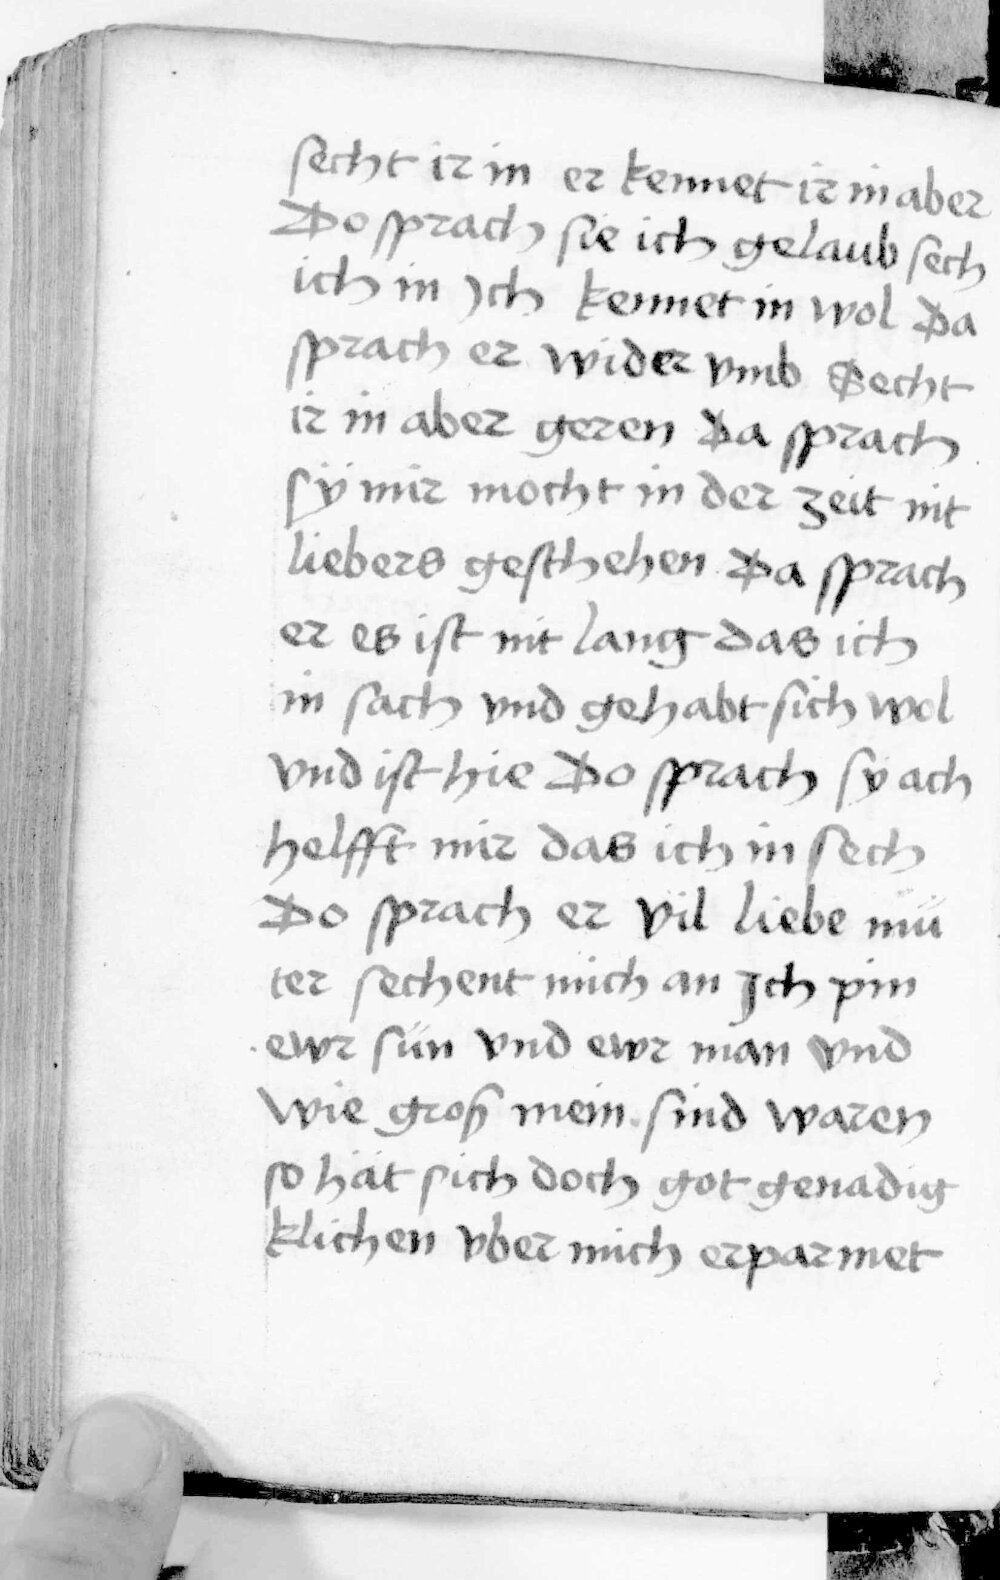 secht ir in er kennet ir in aber
Do sprach sie ich gelaub sech
ich in Jch kennet in wol Da
sprach er wider vmb Secht
ir in aber geren Da sprach
sÿ mir mocht in der zeit nit
liebers gesthehen Da sprach
er es ist nit lang das ich
in sach vnd gehabt sich wol
vnd ist hie Do sprach sy ach
helfft mir das ich in sech
Do sprach er vil liebe mü
ter sechent mich an Jch pin
ewr sün vnd ewr man vnd
wie groß mein sind waren
so hät sich doch got genadig
klichen vber mich erparmet